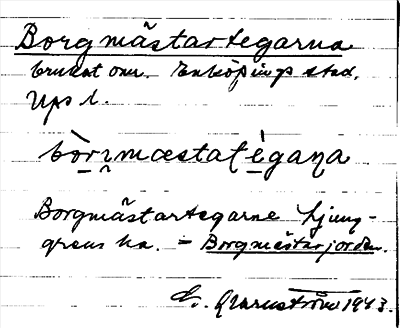 Borgmästartegarna
brukat omr. Enköpings stad,
Ups l.
bòrımæstatègaṇa
Borgmästartegarne Ljung-
grens ka. = Borgmästarjorden.
1943.